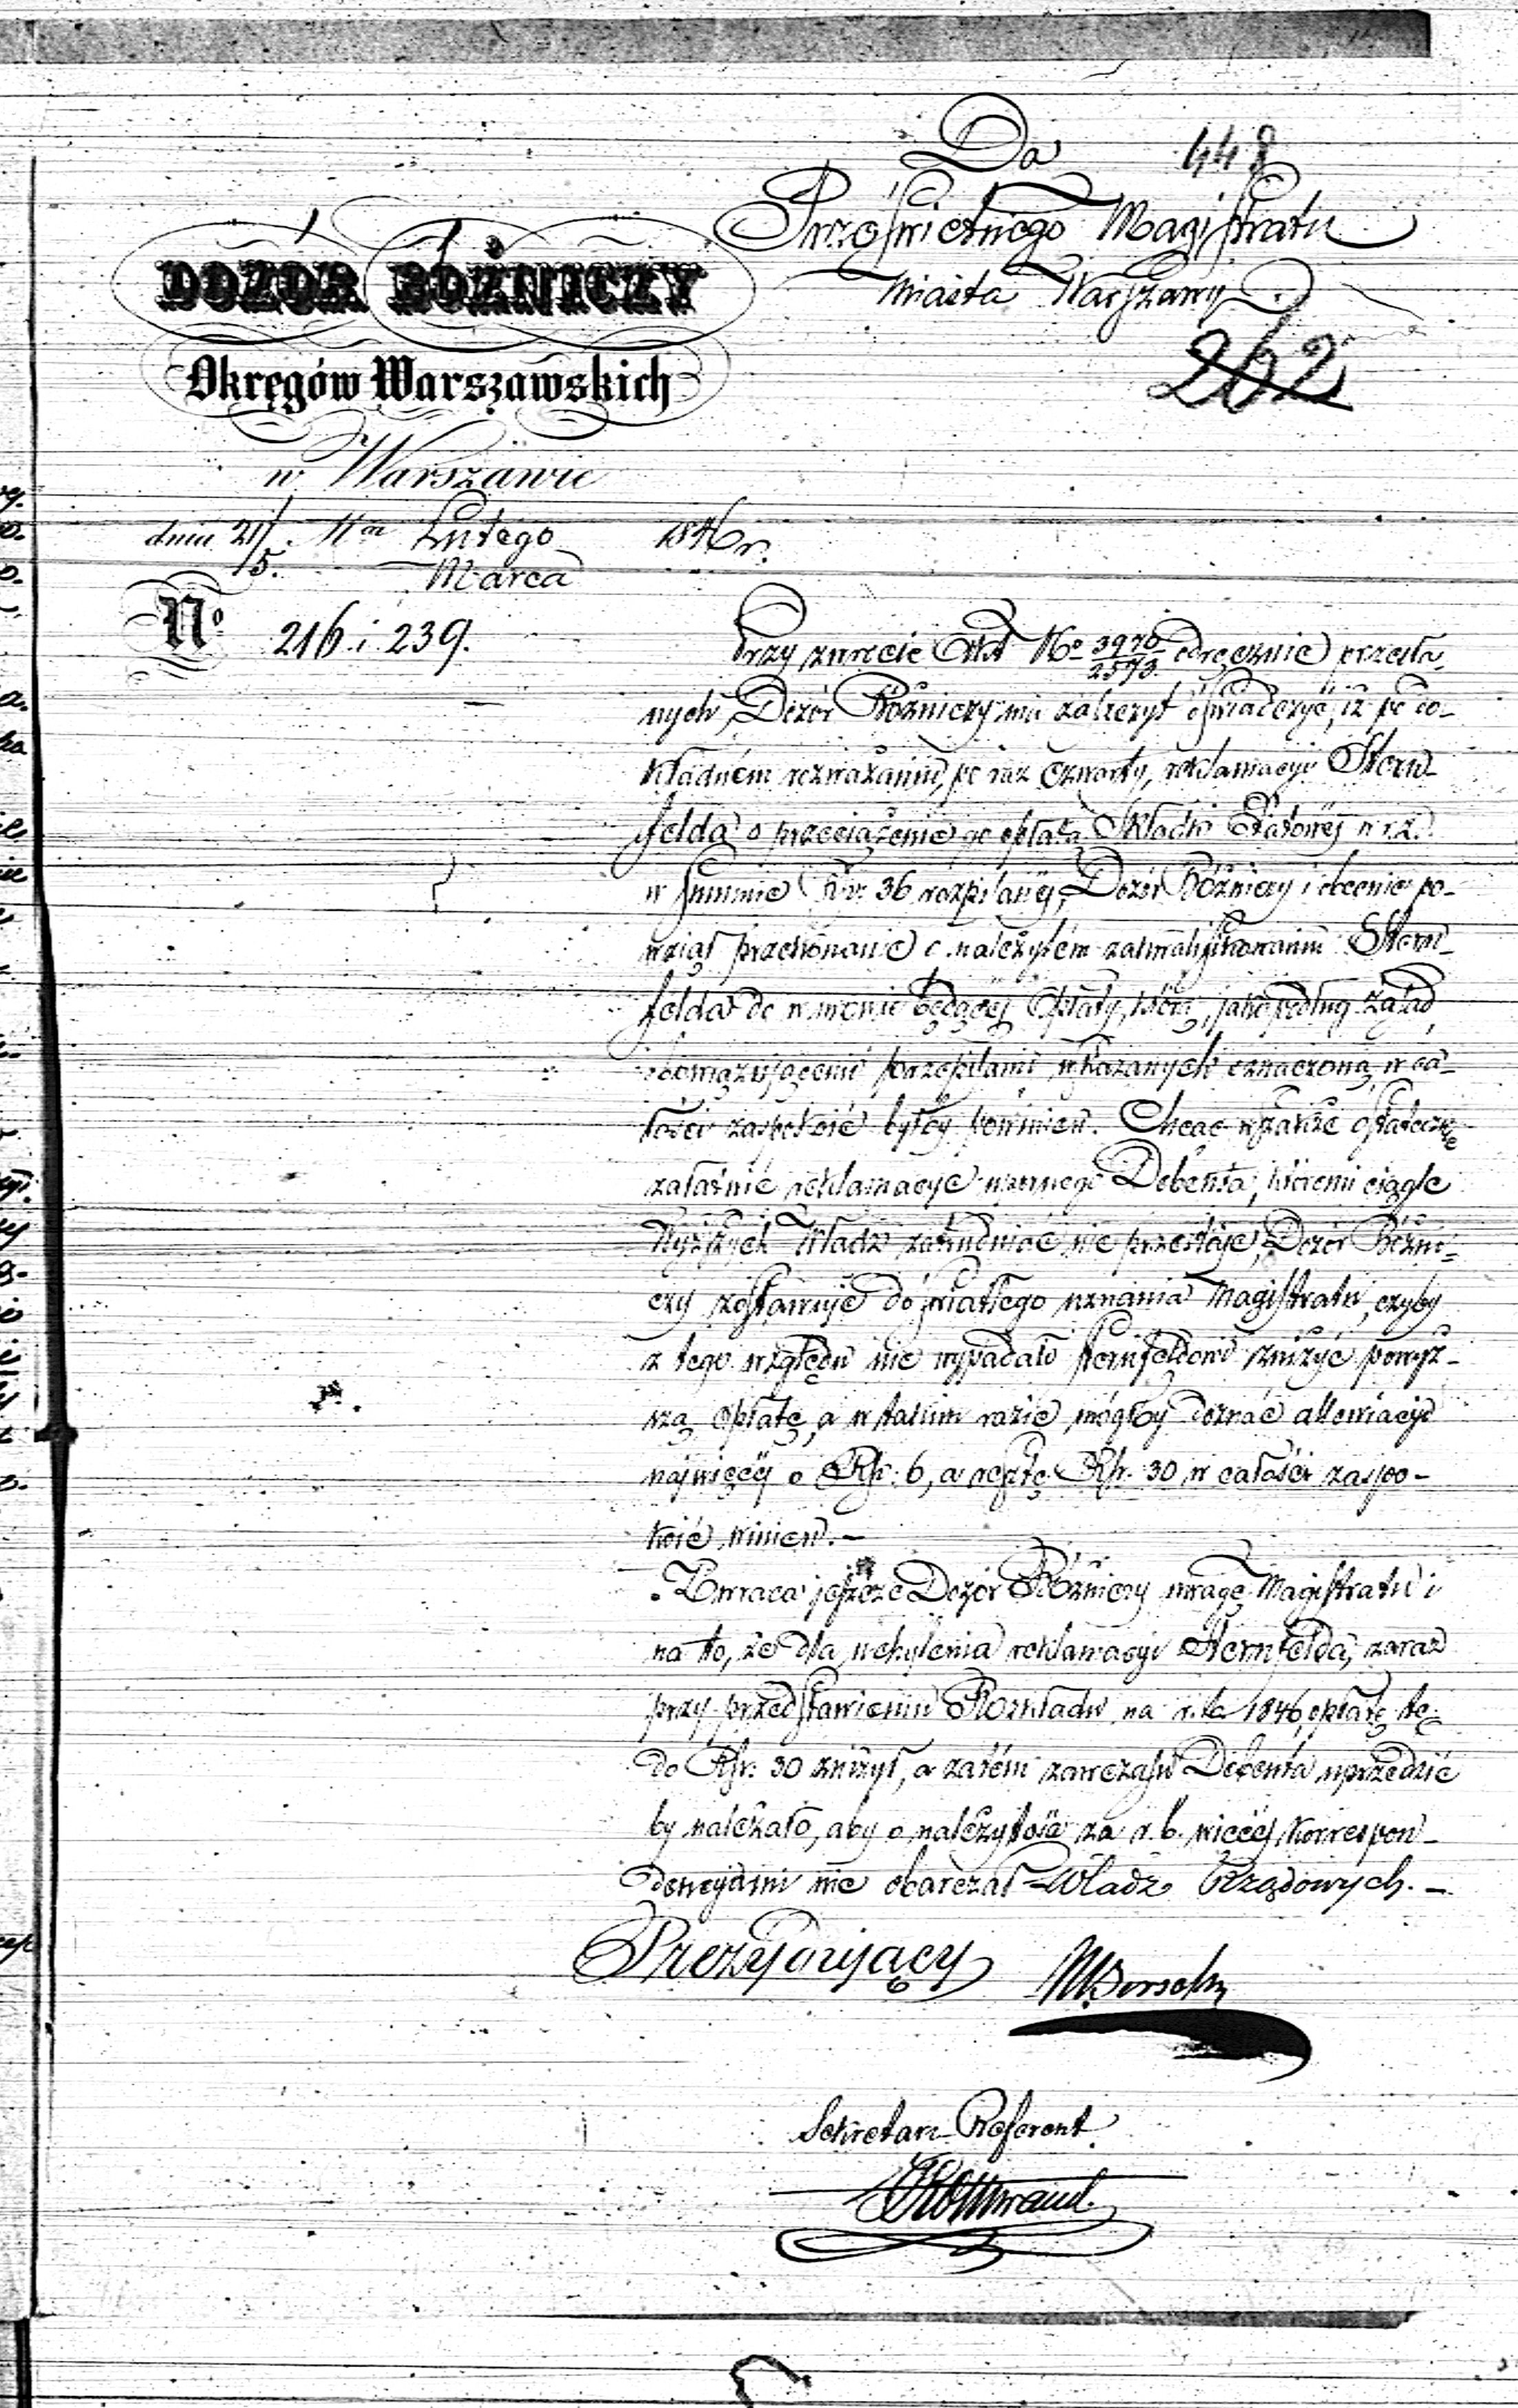 Do
448
Prześwietnego Magistratu
Miasta Warszawy
262
DOZÓR BÓŻNICZY
Okręgów Warszawskich
w Warszawie
dnia 21/5. Lutego 1846 r.
Marca
No 216 i 239.
Przy zwrocie Akt No 3970/2573 odręcznie przesła-
nych, Dozór Bóżniczy ma zaszczyt oświadczyć, iż po do-
kładném rozważaniu, po raz czwarty, reklamacyi Stern-
felda o przeciążenie go opłatą Składki Etatowéj w r.z.
w summie Rsr. 36 rozpisanéj, Dozór Bóżniczy i obecnie po-
wziął przekonanie o należytém zakwalifikowaniu Stern-
felda do w mowie będącéj opłaty, którą, jako podług zasad
obowiązującemi przepisami wskazanych oznaczoną, w ca-
łości zaspokoić byłby powinien. Chcąc wszakże ostatecznie
załatwić reklamacye wzornego Debenta, któremi ciągle
Wyższych Władz zatrudniać nie przestaje, Dozór Bóżni-
czy zostawuje do światłego uznania Magistratu, czyby
z tego względu nie wypadało Sternfeldowi zniżyć powyż-
szą opłatę, a w takim razie mógłby doznać allewiacyi
najwięcéj o Rsr. 6, a resztę Rsr. 30 w całości zaspo-
koić winien. –
Zwraca jeszcze Dozór Bóżniczy uwagę Magistratu i
na to, że dla uchylenia reklamacyi Sternfelda, zaraz
przy przedstawieniu Rozkładu na r. b. 1846, opłatę tę
do Rsr. 30 zniżył, a zatém zawczasu Debenta uprzedzić
by należało, aby o należytość za r. b. więcéj korrespon-
dencyami nie obarczał Władz Rządowych. –
Prezydujący
Sekretarz Referent